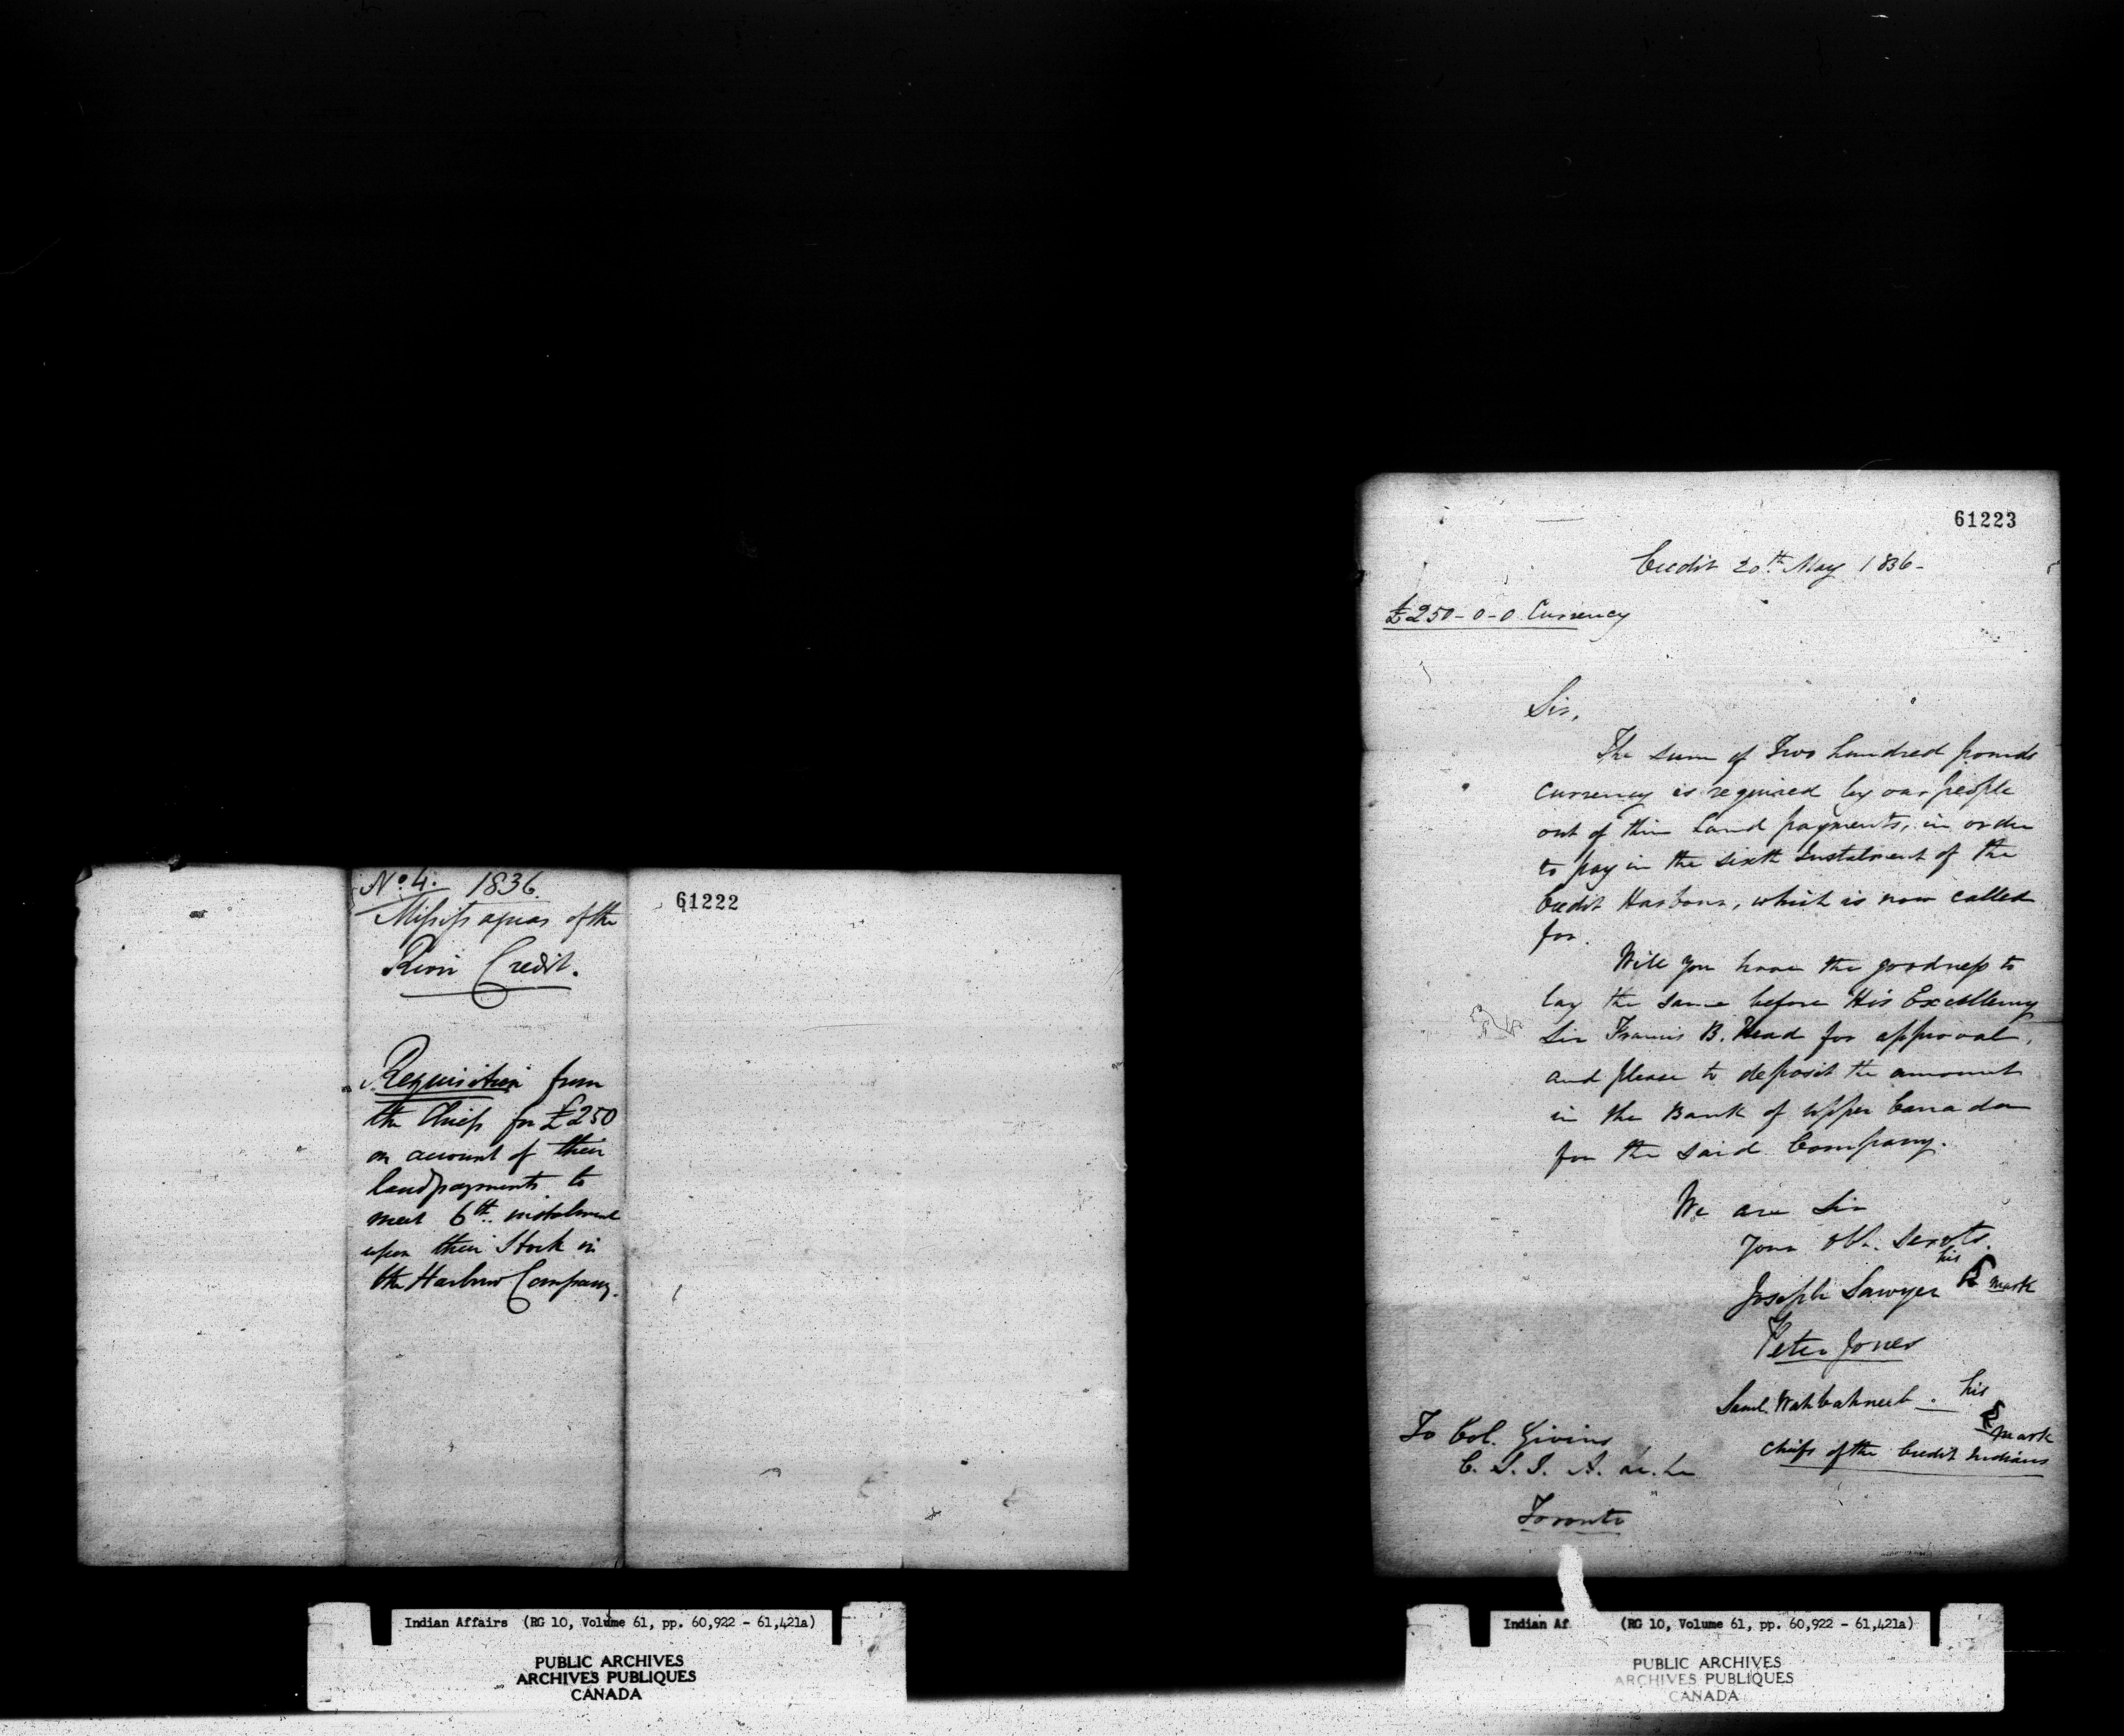 No. 4. 1836.
Missisaguas of the
River Credit.
Requisition from
the Chiefs for £250
on account of their
land payments to
meet 6th. instalment
upon their Stock in
the Harbour Company.
61222
Indian Affairs (RG 10, Volume 61, pp. 60,922 - 61,421a)
PUBLIC ARCHIVES
ARCHIVES PUBLIQUES
CANADA
61223
Credit 20th May 1836-
£250-0-0 Currency
Sir,
The sum of Two hundred pounds
currency is required by our people
out of their Land payments, in order
to pay in the sixth Instalment of the
Credit Harbour, which is now called
for.
Will you have the goodness to
lay the same before His Excellency
Sir Francis B. Head for approval,
and please to deposit the amount
in the Bank of Upper Canada
for the said Company.
We are Sir
Your obt. Servts.
his
Joseph Sawyer mark
Peter Jones
Saml. Wahbahneeb. his
mark
Chiefs of the Credit Indians
To Col. Givins
C. S. I. A.
Toronto
Indian Af (RG 10, Volume 61, pp. 60,922 - 61,421a)
PUBLIC ARCHIVES
ARCHIVES PUBLIQUES
CANADA